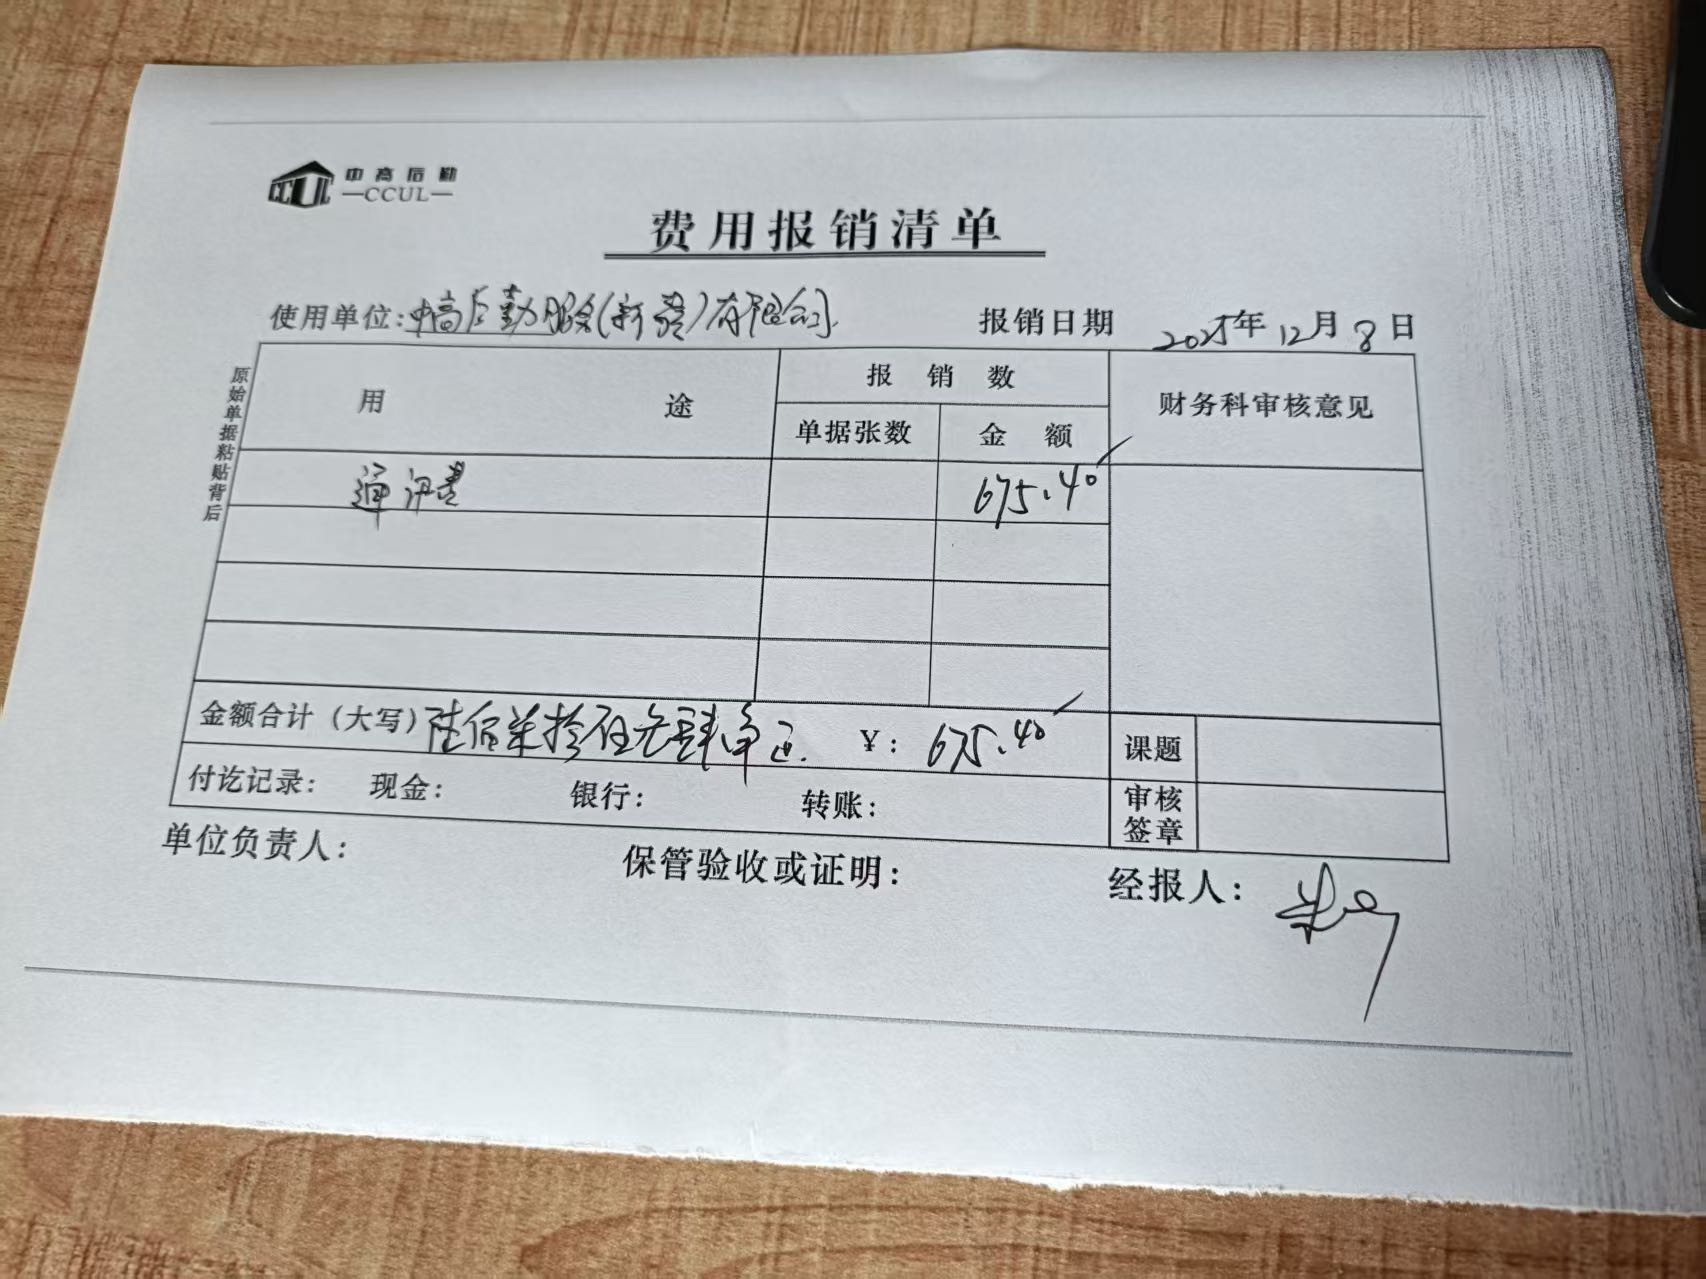 中高后勤
CCUL
费用报销清单
使用单位:中高后勤服务(新疆)有限公司
报销日期 2025年12月8日
原始单据粘贴背后
用途
报销数
财务科审核意见
单据张数
金额
通讯费
675.40
金额合计(大写)陆佰柒拾伍元肆角正. ¥: 675.40
课题
付讫记录: 现金: 银行: 转账:
审核签章
单位负责人:
保管验收或证明:
经报人: